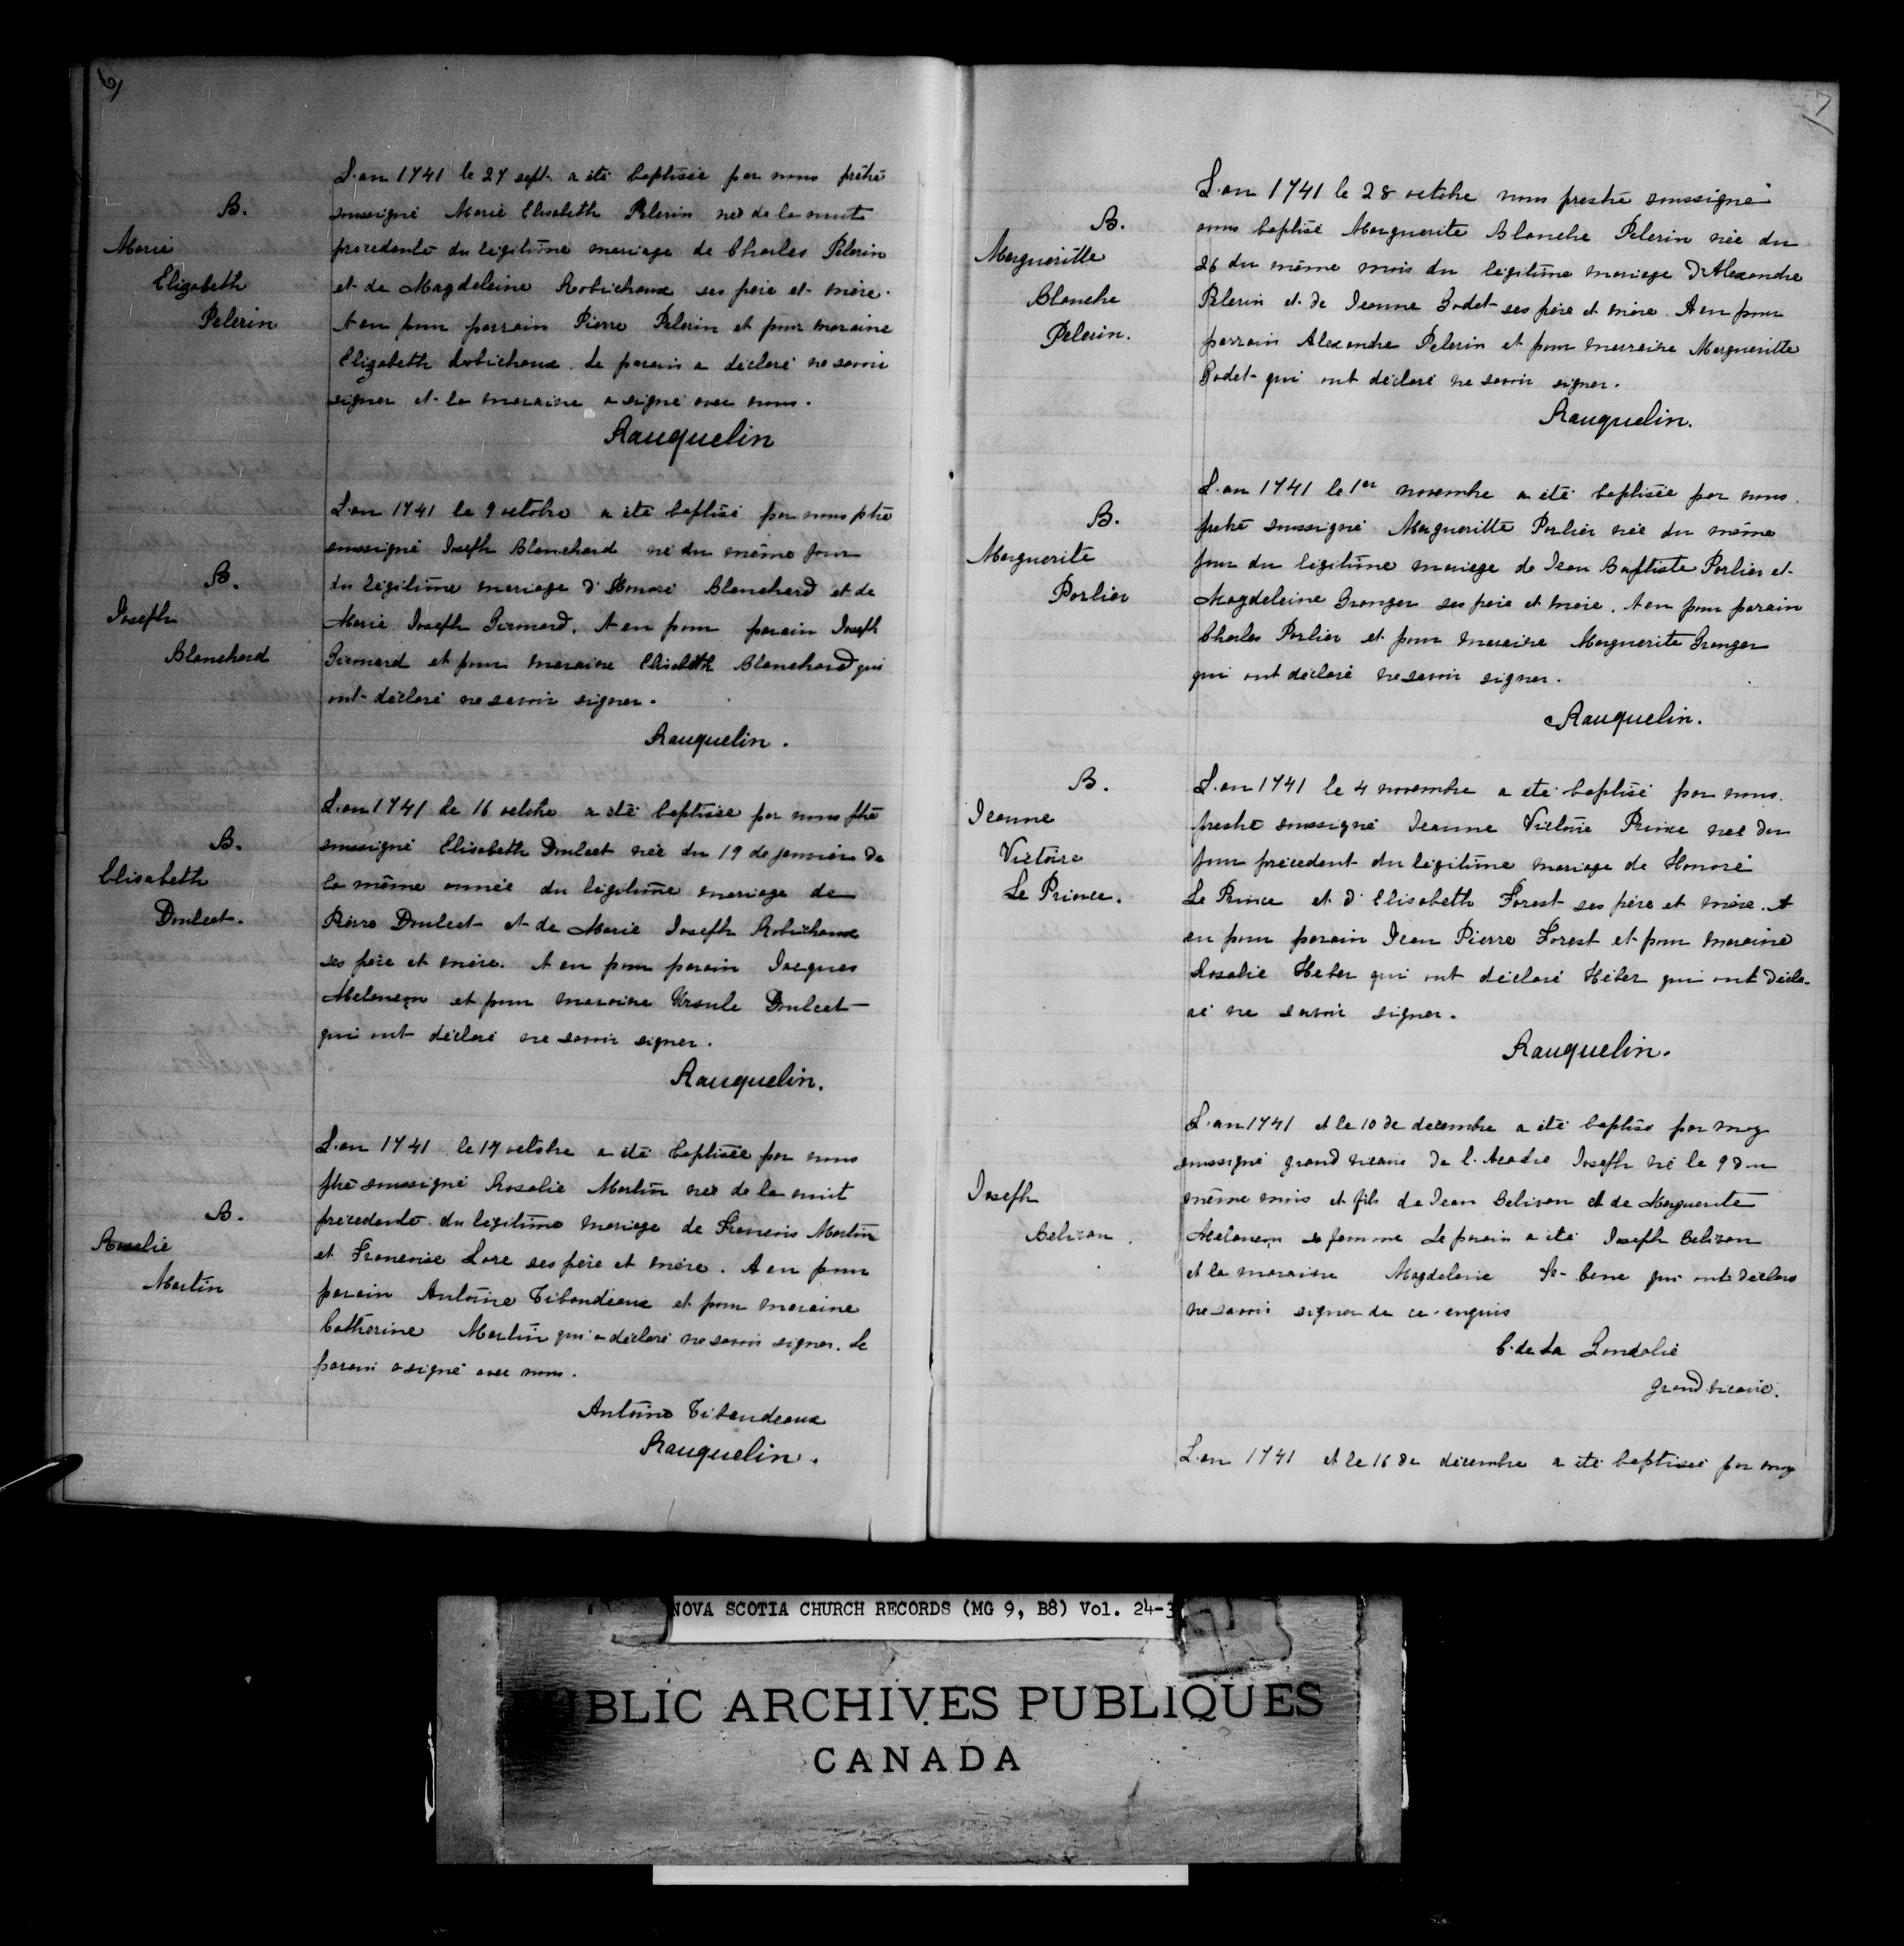 6
B.
Marie
Elizabeth
Pelerin
L'an 1741 le 27 sept. a été baptisée par nous prêtre
soussigné Marie Elisabeth Pelerin née de la nuit
precedente du légitime mariage de Charles Pelerin
et de Magdeleine Robichaux ses père et mère.
A eu pour parrain Pierre Pelerin et pour maraine
Elizabeth Robichaux. Le parain a déclaré ne savoir
signer et la maraine a signé avec nous.
Rauquelin
B.
Joseph
Blanchard
L'an 1741 le 9 octobre a été baptisé par nous ptre
soussigné Joseph Blanchard né du même jour
du légitime mariage d'Honoré Blanchard et de
Marie Joseph Girouard. A eu pour parain Joseph
Girouard et pour maraine Elisabeth Blanchard qui
ont déclaré ne savoir signer.
Rauquelin.
B.
Elisabeth
Doulcet.
L'an 1741 le 16 octobre a été baptisée par nous ptre
soussigné Elisabeth Doulcet née du 19 de janvier de
la même année du légitime mariage de
Pierre Doulcet et de Marie Joseph Robichaux
ses père et mère. A eu pour parain Jacques
Melançon et pour maraine Ursule Doulcet
qui ont déclaré ne savoir signer.
Rauquelin.
B.
Rosalie
Martin
L'an 1741 le 17 octobre a été baptisée par nous
ptre soussigné Rosalie Martin née de la nuit
précedente du légitime mariage de François Martin
et Françoise Lore ses père et mère. A eu pour
parain Antoine Tibaudeaux et pour maraine
Catherine Martin qui a déclaré ne savoir signer. Le
parain a signé avec nous.
Antoine Tibaudeaux
Rauquelin.
7
B.
Margueritte
Blanche
Pelerin.
L'an 1741 le 28 octobre nous prestre soussigné
avons baptisé Marguerite Blanche Pelerin née du
26 du même mois du légitime mariage d'Alexandre
Pelerin et de Jeanne Godet ses père et mère. A eu pour
parrain Alexandre Pelerin et pour marraine Margueritte
Godet qui ont déclaré ne savoir signer.
Rauquelin.
B.
Marguerite
Porlier
L'an 1741 le 1er novembre a été baptisée par nous
prêtre soussigné Margueritte Porlier née du même
jour du légitime mariage de Jean Baptiste Porlier et
Magdeleine Granger ses père et mère. A eu pour parain
Charles Porlier et pour maraine Marguerite Granger
qui ont déclaré ne savoir signer.
Rauquelin.
B.
Jeanne
Victoire
Le Prince.
L'an 1741 le 4 novembre a été baptisé par nous
prestre soussigné Jeanne Victoire Prince née du
jour précedent du légitime mariage de Honoré
Le Prince et d'Elisabeth Forest ses père et mère. A
eu pour parain Jean Pierre Forest et pour maraine
Rosalie Heber qui ont déclaré Héber qui ont décla-
ré ne savoir signer.
Rauquelin.
Joseph
Belivau.
L'an 1741 et le 10 de decembre a été baptisé par moy
soussigné grand vicaire de l'Acadie Joseph né le 9 du
même mois et fils de Jean Belivau et de Marguerite
Melançon sa femme le parain a été Joseph Belivau
et la maraine Magdelaine qui ont déclaré
ne savoir signer de ce enquis
C. de La Goudalie
grand vicaire.
L'an 1741 et le 16 de décembre a été baptisée par moy
NOVA SCOTIA CHURCH RECORDS (MG 9, B8) Vol. 24-3
PUBLIC ARCHIVES PUBLIQUES
CANADA